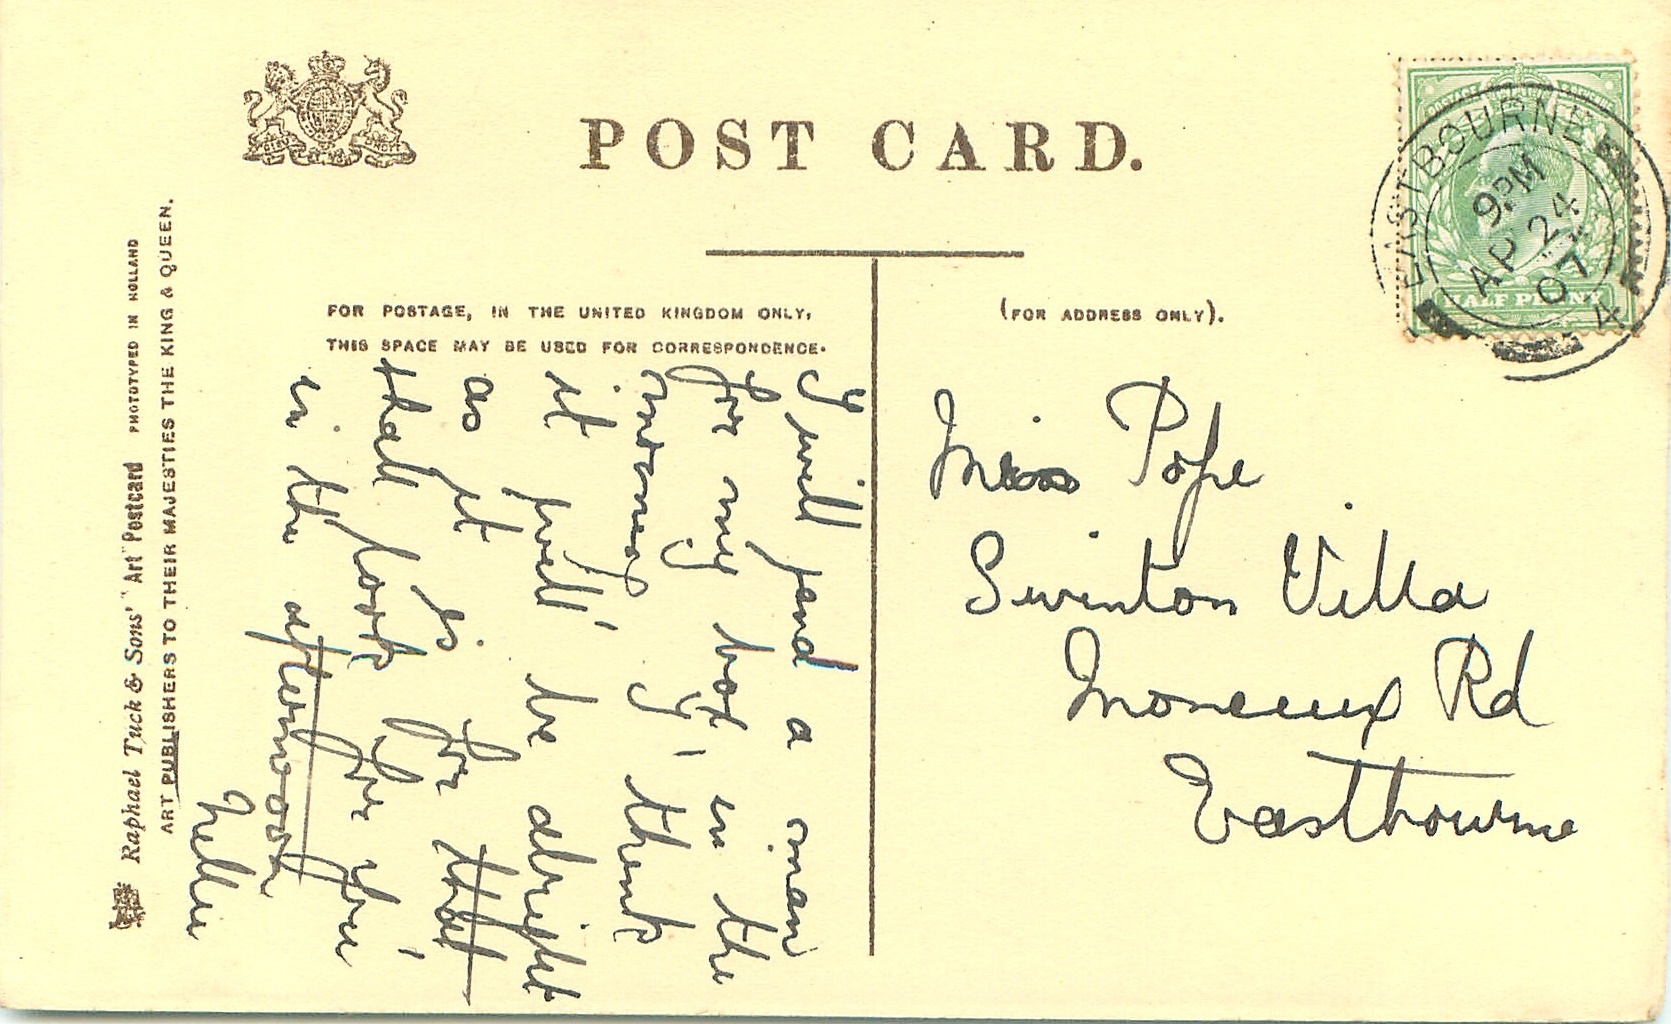 POST CARD.
FOR POSTAGE, IN THE UNITED KINGDOM ONLY,
THIS SPACE MAY BE USED FOR CORRESPONDENCE.
(FOR ADDRESS ONLY).
I will send a man
for my box in the
morning. I think
it will be alright
as it is for that
shall look for you.
in the afternoon
Nellie
Miss Pope
Swinton Villa
Monceux Rd
Eastbourne
EASTBOURNE
9 PM
AP 24
07
4
HALF PENNY
Raphael Tuck & Sons' "Art" Postcard PHOTOTYPED IN HOLLAND
ART PUBLISHERS TO THEIR MAJESTIES THE KING & QUEEN.